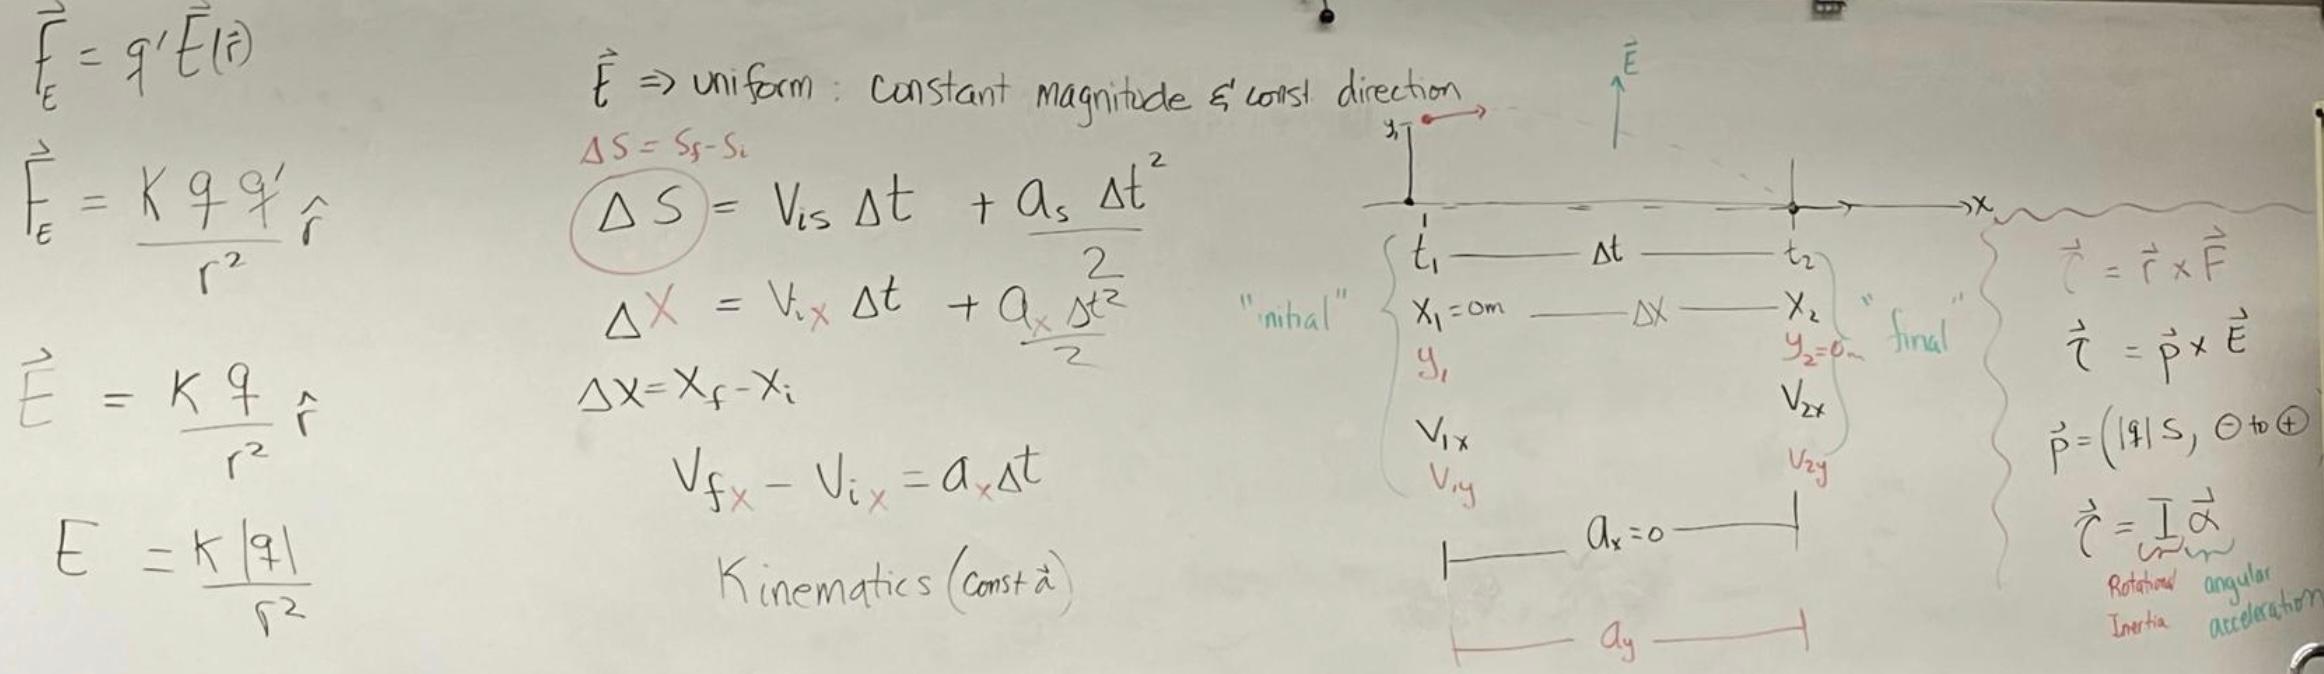 F⃗_E = q'E⃗(r⃗)
F⃗_E = K q q' / r² r̂
E⃗ = K q / r² r̂
E = K |q| / r²
E⃗ => uniform : constant magnitude & const direction
ΔS = S_f - S_i
ΔS = V_is Δt + a_s Δt² / 2
ΔX = V_ix Δt + a_x Δt² / 2
ΔX = X_f - X_i
V_fx - V_ix = a_x Δt
Kinematics (const a⃗)
E⃗
y₁
x
t₁ Δt t₂
"initial" X₁ = 0m ΔX X₂ "final"
y₁ y₂=0m
V₁x V₂x
V₁y V₂y
a_x = 0
a_y
τ⃗ = r⃗ × F⃗
τ⃗ = p⃗ × E⃗
p⃗ = (|q| S, ⊖ to ⊕
τ⃗ = I α⃗
Rotational Inertia
angular acceleration